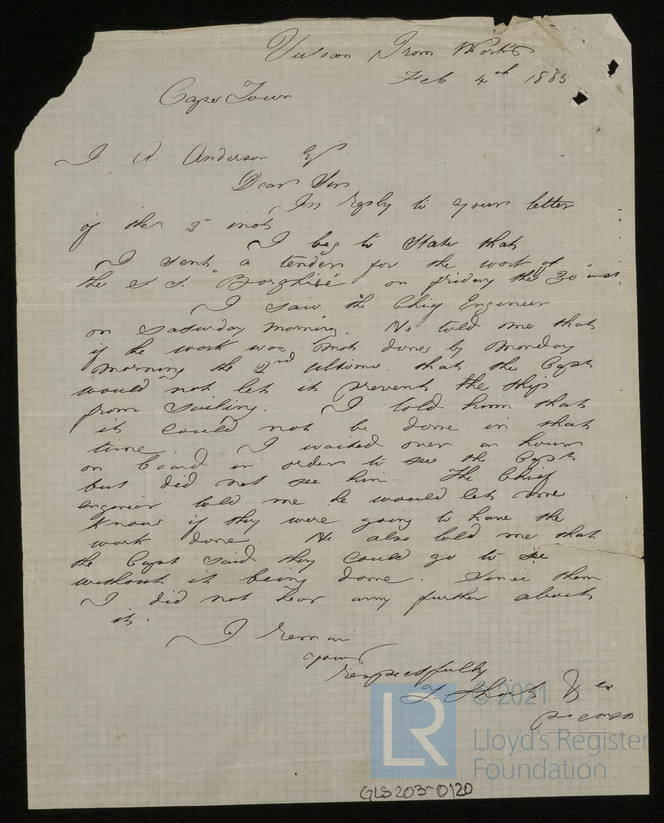 Vulcan Iron Works
Feb 4th 1885
Cape Town
J. A. Anderson Esq
Dear Sir
In reply to your letter
of the 2nd inst
I beg to State that
I sent a tender for the work of
the S S. "Borghese" on friday the 30 inst,
I saw the Chief Engineer
on Saturday morning. He told me that
if the work was not done by Monday
morning the 2nd ultimo. that the Capt
would not let it prevent the ship
from Sailing. I told him that
it could not be done in that
time. I waited over an hour
on board in order to see the Capt
but did not see him. The Chief
engineer told me he would let me
know if they were going to have the
work done. He also told me that
the Capt said they could go to se
without it being done. Since then
I did not hear any further about
it.
I remain
yours
respectfully
© 2021
Lloyd's Register
Foundation
LR
GLS203-0120